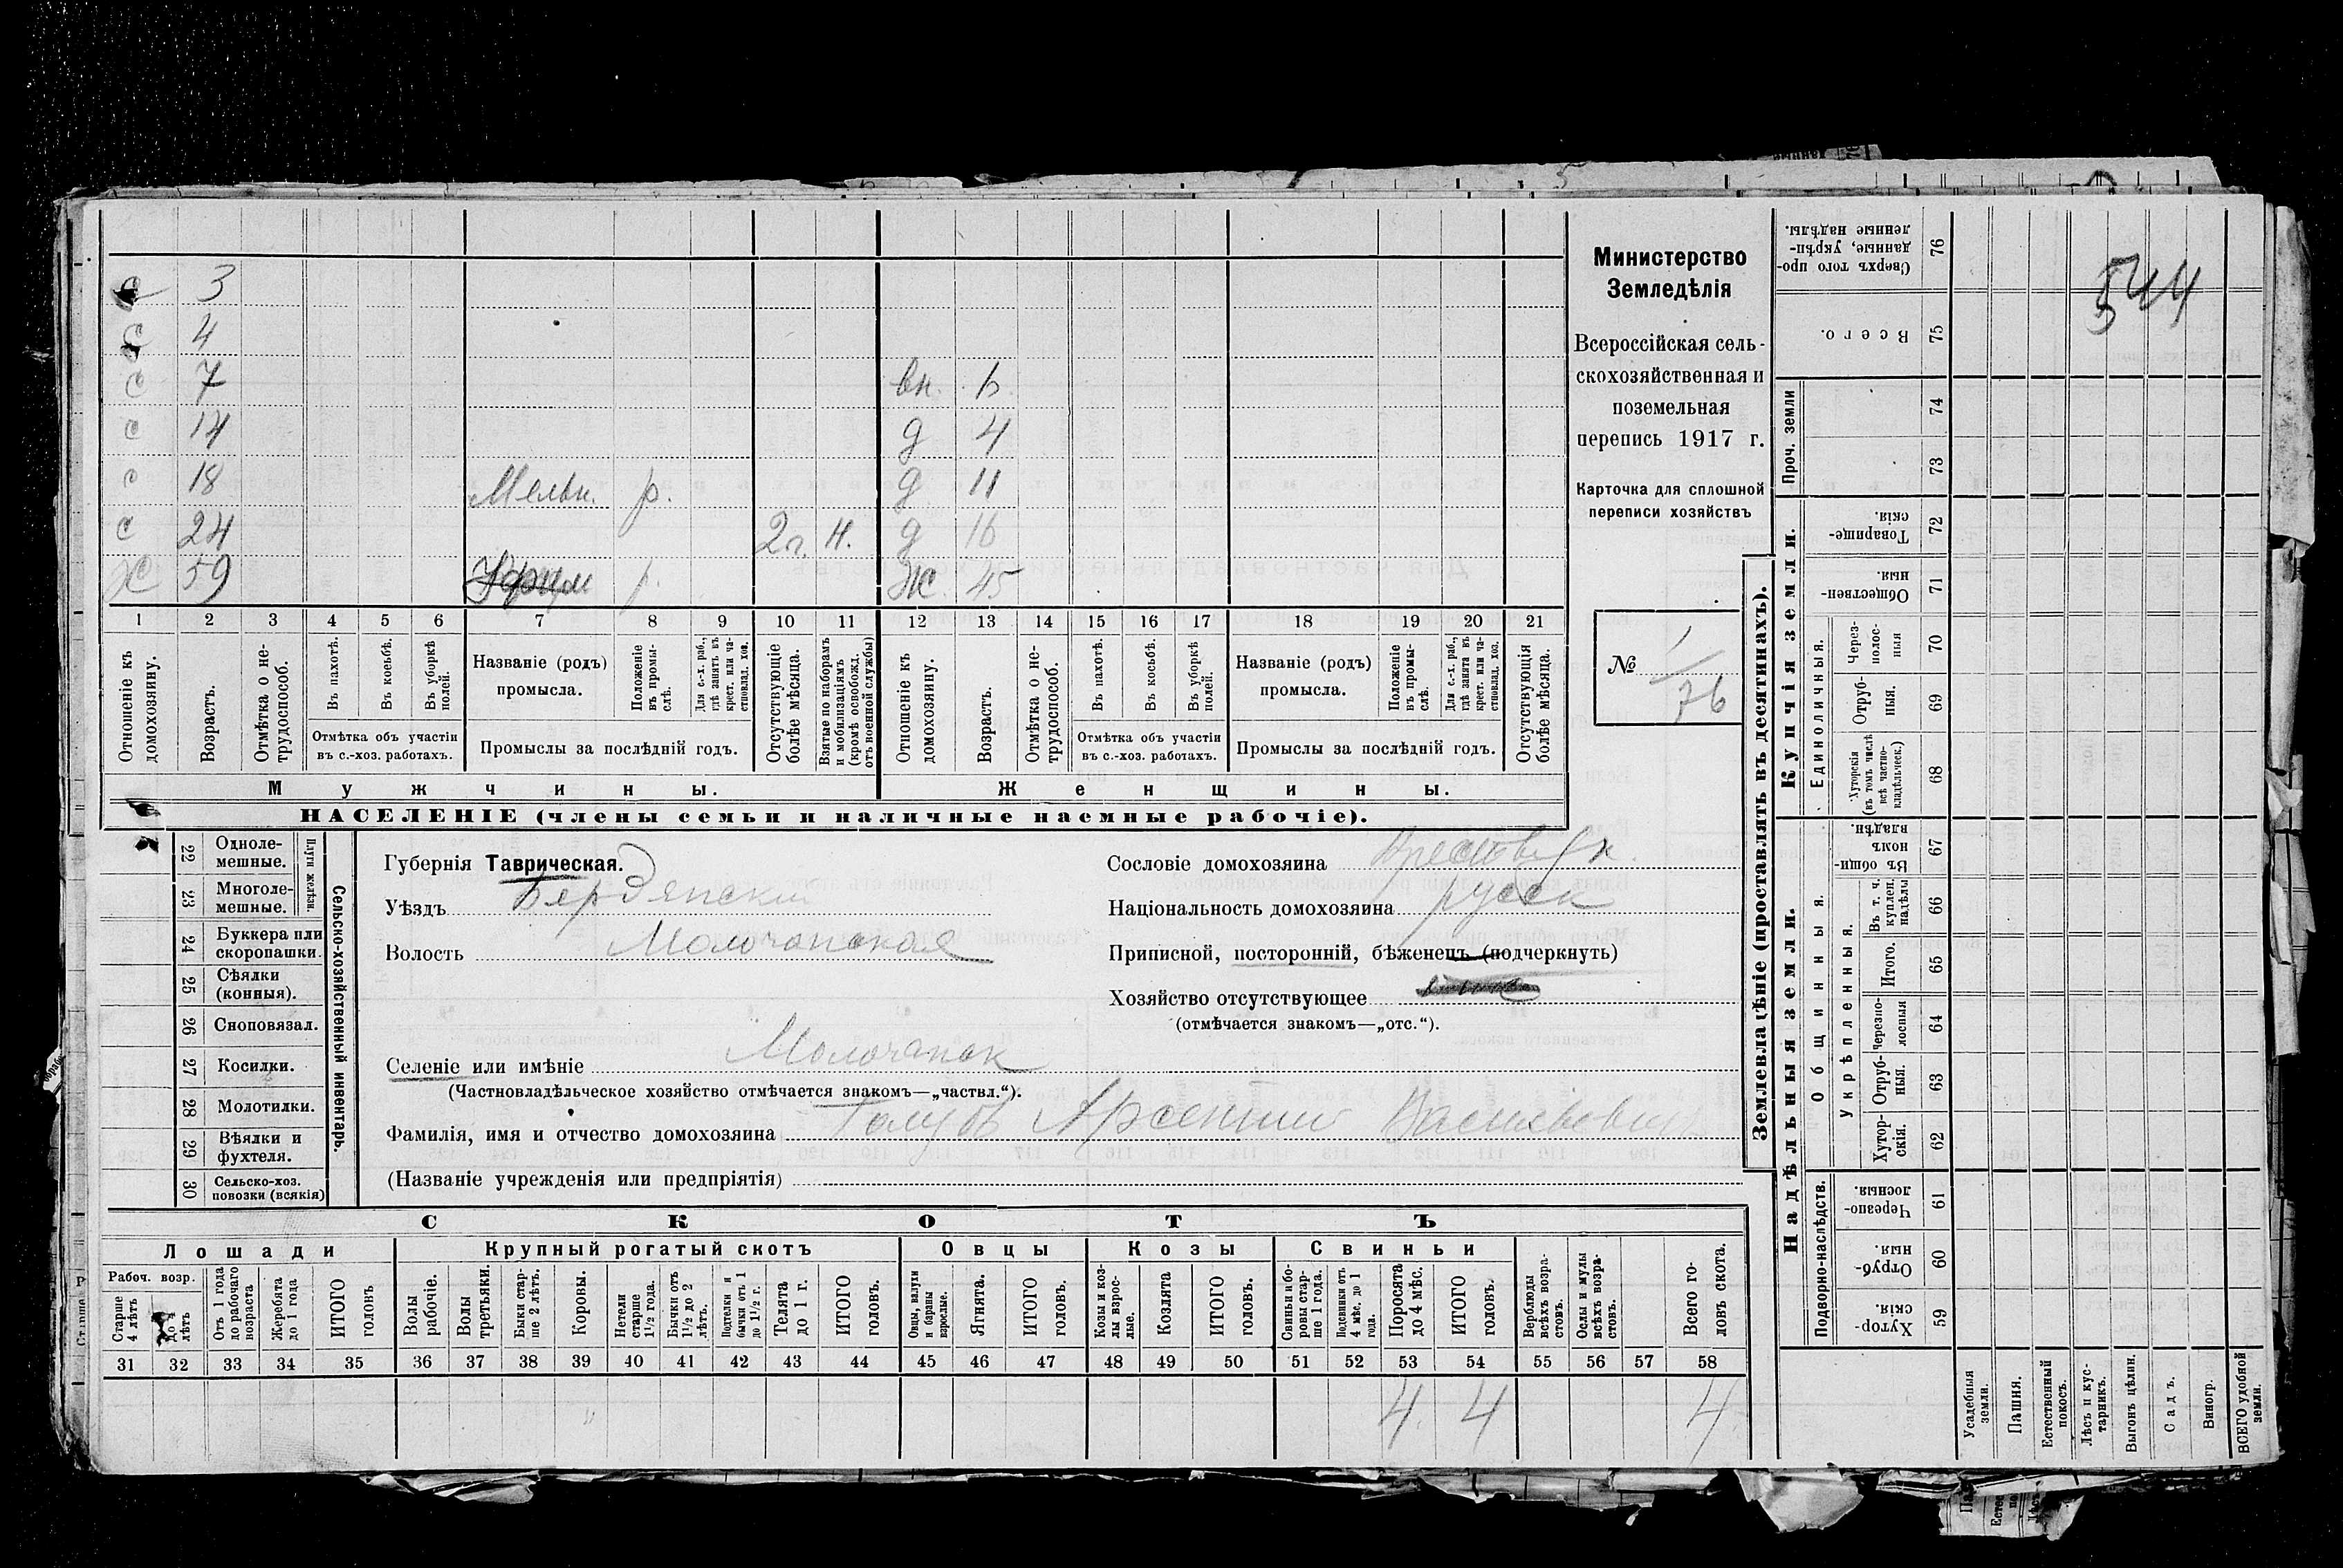 с 3
с 4
с 7 вн. 6.
с 14 д 4
с 18 Мельн. р. д 11
с 24 2 г. н. д 16
Х 59 р. Ж. 45
1 2 3 4 5 6 7 8 9 10 11 12 13 14 15 16 17 18 19 20 21
Отношеніе къ домохозяину.
Возрастъ.
Отмѣтка о нетрудоспособ.
Въ пахотѣ.
Въ косьбѣ.
Въ уборкѣ полей.
Отмѣтка объ участіи
въ с.-хоз. работахъ.
Названіе (родъ)
промысла.
Положеніе въ промыслѣ.
Для с.-х. раб., гдѣ занятъ въ крест. или частновлад. хоз.
Промыслы за послѣдній годъ.
Отсутствующіе болѣе мѣсяца.
Взятые по наборамъ и мобилизаціямъ (кромѣ освобожд. отъ военной службы)
Отношеніе къ домохозяину.
Возрастъ.
Отмѣтка о нетрудоспособ.
Въ пахотѣ.
Въ косьбѣ.
Въ уборкѣ полей.
Отмѣтка объ участіи
въ с.-хоз. работахъ.
Названіе (родъ)
промысла.
Положеніе въ промыслѣ.
Для с.-х. раб., гдѣ занята въ крест. или частновлад. хоз.
Промыслы за послѣдній годъ.
Отсутствующія болѣе мѣсяца.
Мужчины. Женщины.
НАСЕЛЕНІЕ (члены семьи и наличные наемные рабочіе).
Министерство
Земледѣлія
Всероссійская сель-
скохозяйственная и
поземельная
перепись 1917 г.
Карточка для сплошной
переписи хозяйствъ
№ 1/76
Сельско-хозяйственный инвентарь.
Плуги желѣзн.
22 Одноле-
мешные.
23 Многоле-
мешные.
24 Буккера или
скоропашки.
25 Сѣялки
(конныя).
26 Сноповязал.
27 Косилки.
28 Молотилки.
29 Вѣялки и
фухтеля.
30 Сельско-хоз.
повозки (всякія)
Губернія Таврическая.
Уѣздъ Бердянский
Волость Молочанская
Селеніе или имѣніе Молочанск
(Частновладѣльческое хозяйство отмѣчается знакомъ—„частвл.“).
Фамилія, имя и отчество домохозяина Голубов Арсентий Васильевич
(Названіе учрежденія или предпріятія)
Сословіе домохозяина
Національность домохозяина русск
Приписной, посторонній, бѣженецъ (подчеркнуть)
Хозяйство отсутствующее
(отмѣчается знакомъ—„отс.“).
СКОТЪ
Лошади Крупный рогатый скотъ Овцы Козы Свиньи
Рабоч. возр.
Старше 4 лѣтъ
до 4 лѣтъ
Отъ 1 года до рабочаго возраста
Жеребята до 1 года
ИТОГО головъ
Волы рабочіе.
Волы третьяки.
Быки старше 2 лѣтъ.
Коровы.
Нетели старше 1½ года.
Бычки отъ 1½ до 2 лѣтъ.
Подтелки и бычки отъ 1 до 1½ г.
Телята до 1 г.
ИТОГО головъ.
Овцы, валухи и бараны взрослые.
Ягнята.
ИТОГО головъ.
Козы и козлы взрослые.
Козлята
ИТОГО головъ.
Свиньи и боровы старше 1 года.
Подсвинки отъ 4 мѣс. до 1 года.
Поросята до 4 мѣс.
ИТОГО головъ.
Верблюды всѣхъ возрастовъ.
Ослы и мулы всѣхъ возрастовъ.
Всего головъ скота.
31 32 33 34 35 36 37 38 39 40 41 42 43 44 45 46 47 48 49 50 51 52 53 54 55 56 57 58
4. 4 4
Землевладѣніе (проставлять въ десятинахъ).
Купчія земли.
Надѣльныя земли.
Сверхъ того проданные, укрѣпленные надѣлы. 76
Всего. 75
Проч. земли
74
73
Товарищескія. 72
Общественныя. 71
Единоличныя.
Черезполосныя 70
Отрубныя. 69
Хуторскія (въ томъ числѣ всѣ частновладѣльческ.) 68
Общинныя.
Въ общинномъ владѣн. 67
Укрѣпленныя.
Въ т. ч. куплен. надѣлы 66
Итого. 65
Черезполосныя 64
Отрубныя. 63
Хуторскія. 62
Подворно-наслѣдств.
Черезполосныя. 61
Отрубныя. 60
Хуторскія. 59
Усадебныя земли.
Пашня.
Естественный покосъ.
Лѣсъ и кустарникъ.
Выгонъ цѣлин.
Садъ.
Виногр.
ВСЕГО удобной земли.
544